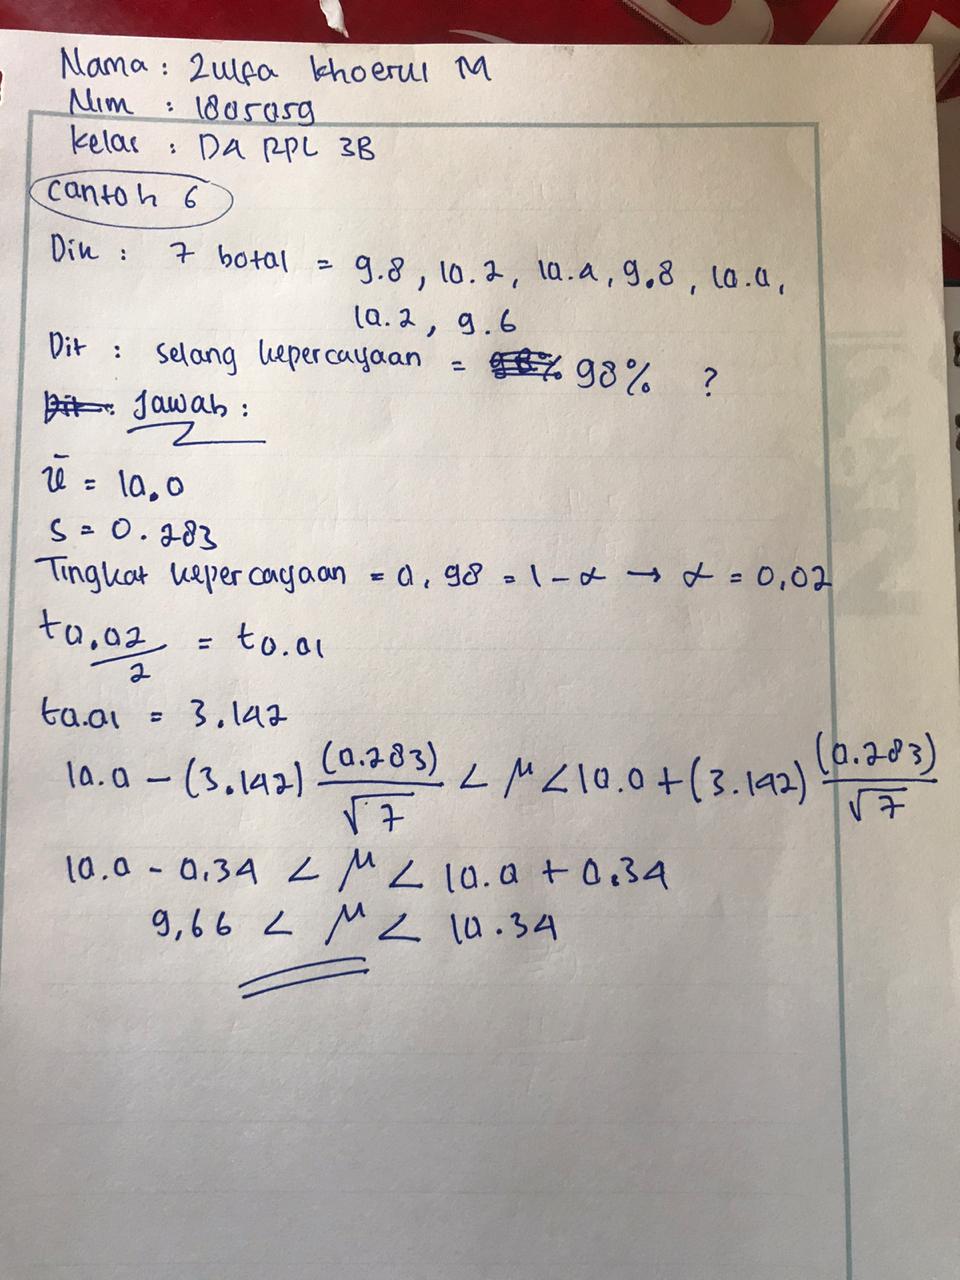 Nama : Zulfa Khoerul M
Nim : 1805059
Kelas : D4 RPL 3B
Contoh 6
Dik : 7 botol = 9.8, 10.2, 10.4, 9.8, 10.0,
10.2, 9.6
Dit : Selang kepercayaan = 98% ?
Jawab :
x̄ = 10.0
S = 0.283
Tingkat kepercayaan = 0,98 = 1 - α → α = 0,02
t0.02/2 = t0.01
t0.01 = 3.142
10.0 - (3.142) (0.283)/√7 < μ < 10.0 + (3.142) (0.283)/√7
10.0 - 0.34 < μ < 10.0 + 0.34
9,66 < μ < 10.34